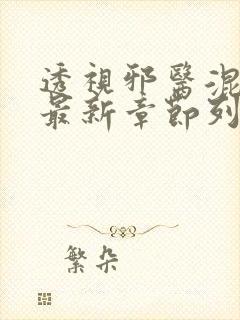 透視邪醫混
最新章節列
繁朵